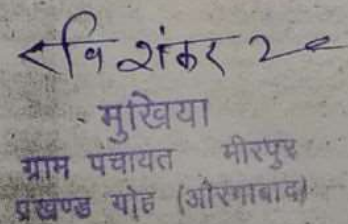 रवि शंकर
मुखिया
ग्राम पंचायत मीरपुर
प्रखण्ड गोह (औरंगाबाद)